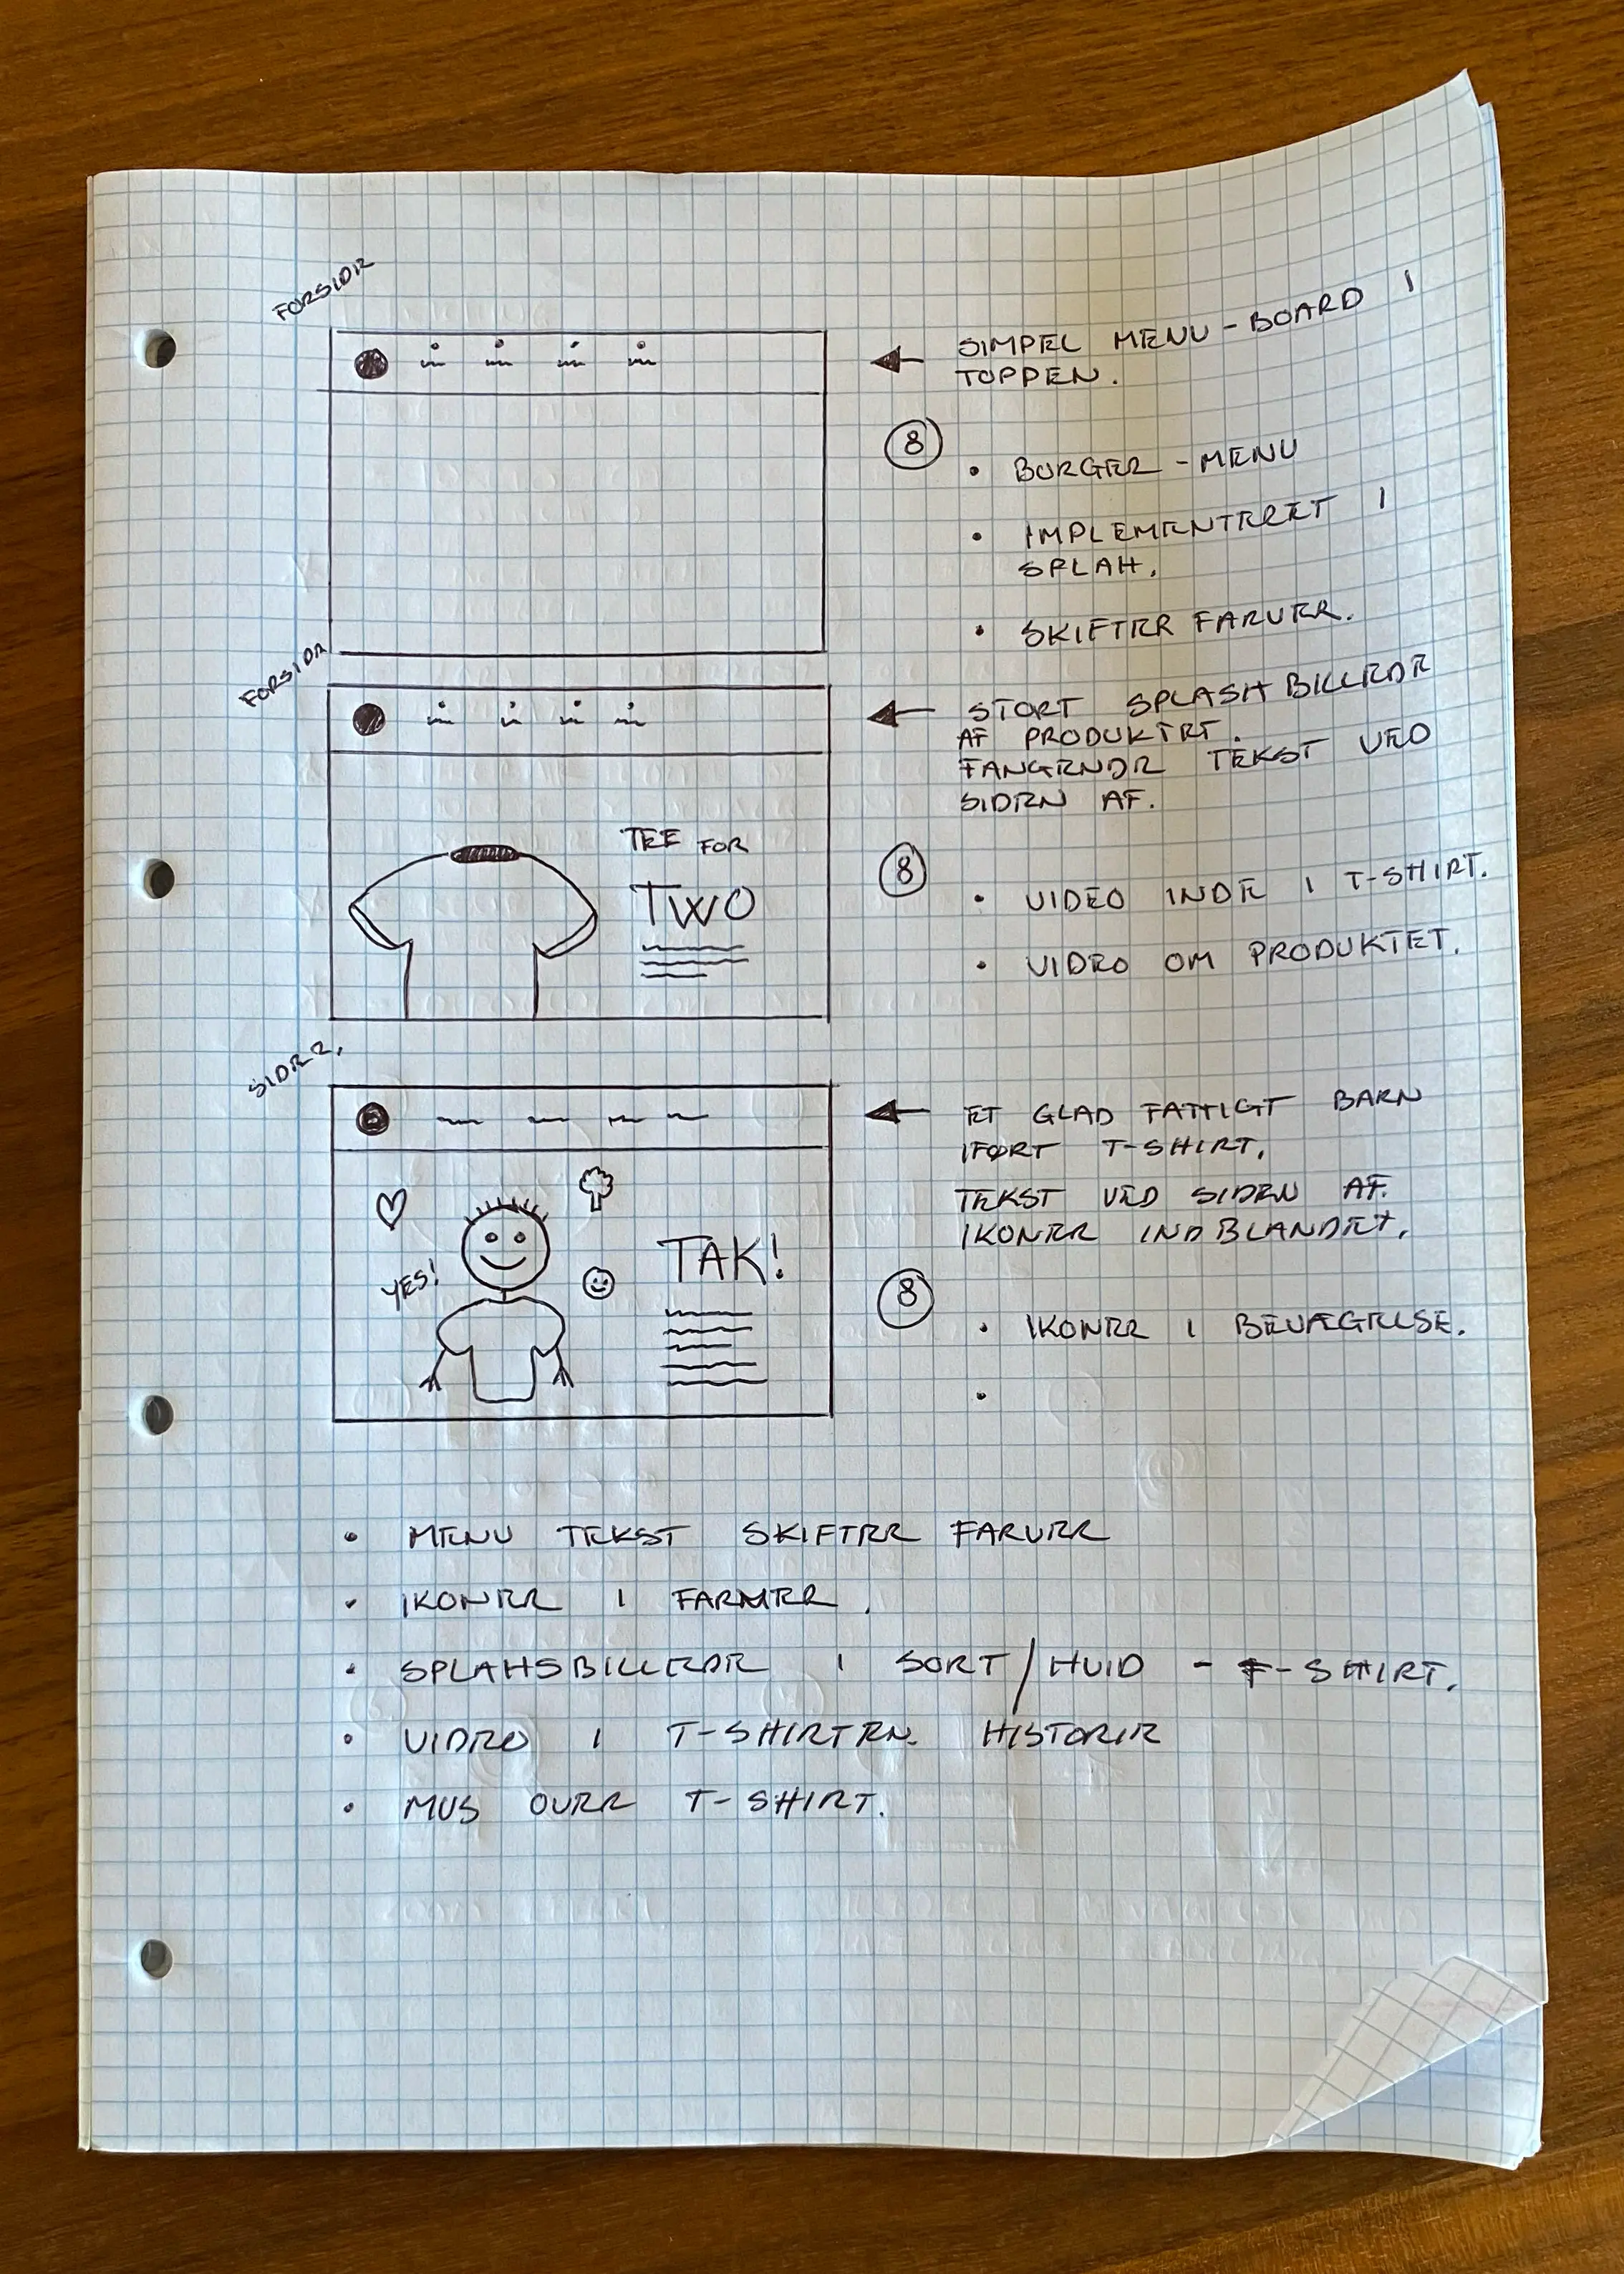 FORSIDE
SIMPEL MENU-BOARD I
TOPPEN.
8
• BURGER-MENU
• IMPLEMENTERET I
SPLAH.
• SKIFTER FARVER.
FORSIDE
STORT SPLASHBILLEDE
AF PRODUKTET.
FANGENDE TEKST VED
SIDEN AF.
TEE FOR
TWO
8
• VIDEO INDE I T-SHIRT.
• VIDEO OM PRODUKTET.
SIDE 2.
ET GLAD FATTIGT BARN
IFØRT T-SHIRT.
TEKST VED SIDEN AF.
IKONER INDBLANDET.
YES!
TAK!
8
• IKONER I BEVÆGELSE.
•
• MENU TEKST SKIFTER FARVER
• IKONER I FARVER.
• SPLAHSBILLEDE I SORT/HVID - T-SHIRT.
• VIDEO I T-SHIRTEN. HISTORIE
• MUS OVER T-SHIRT.